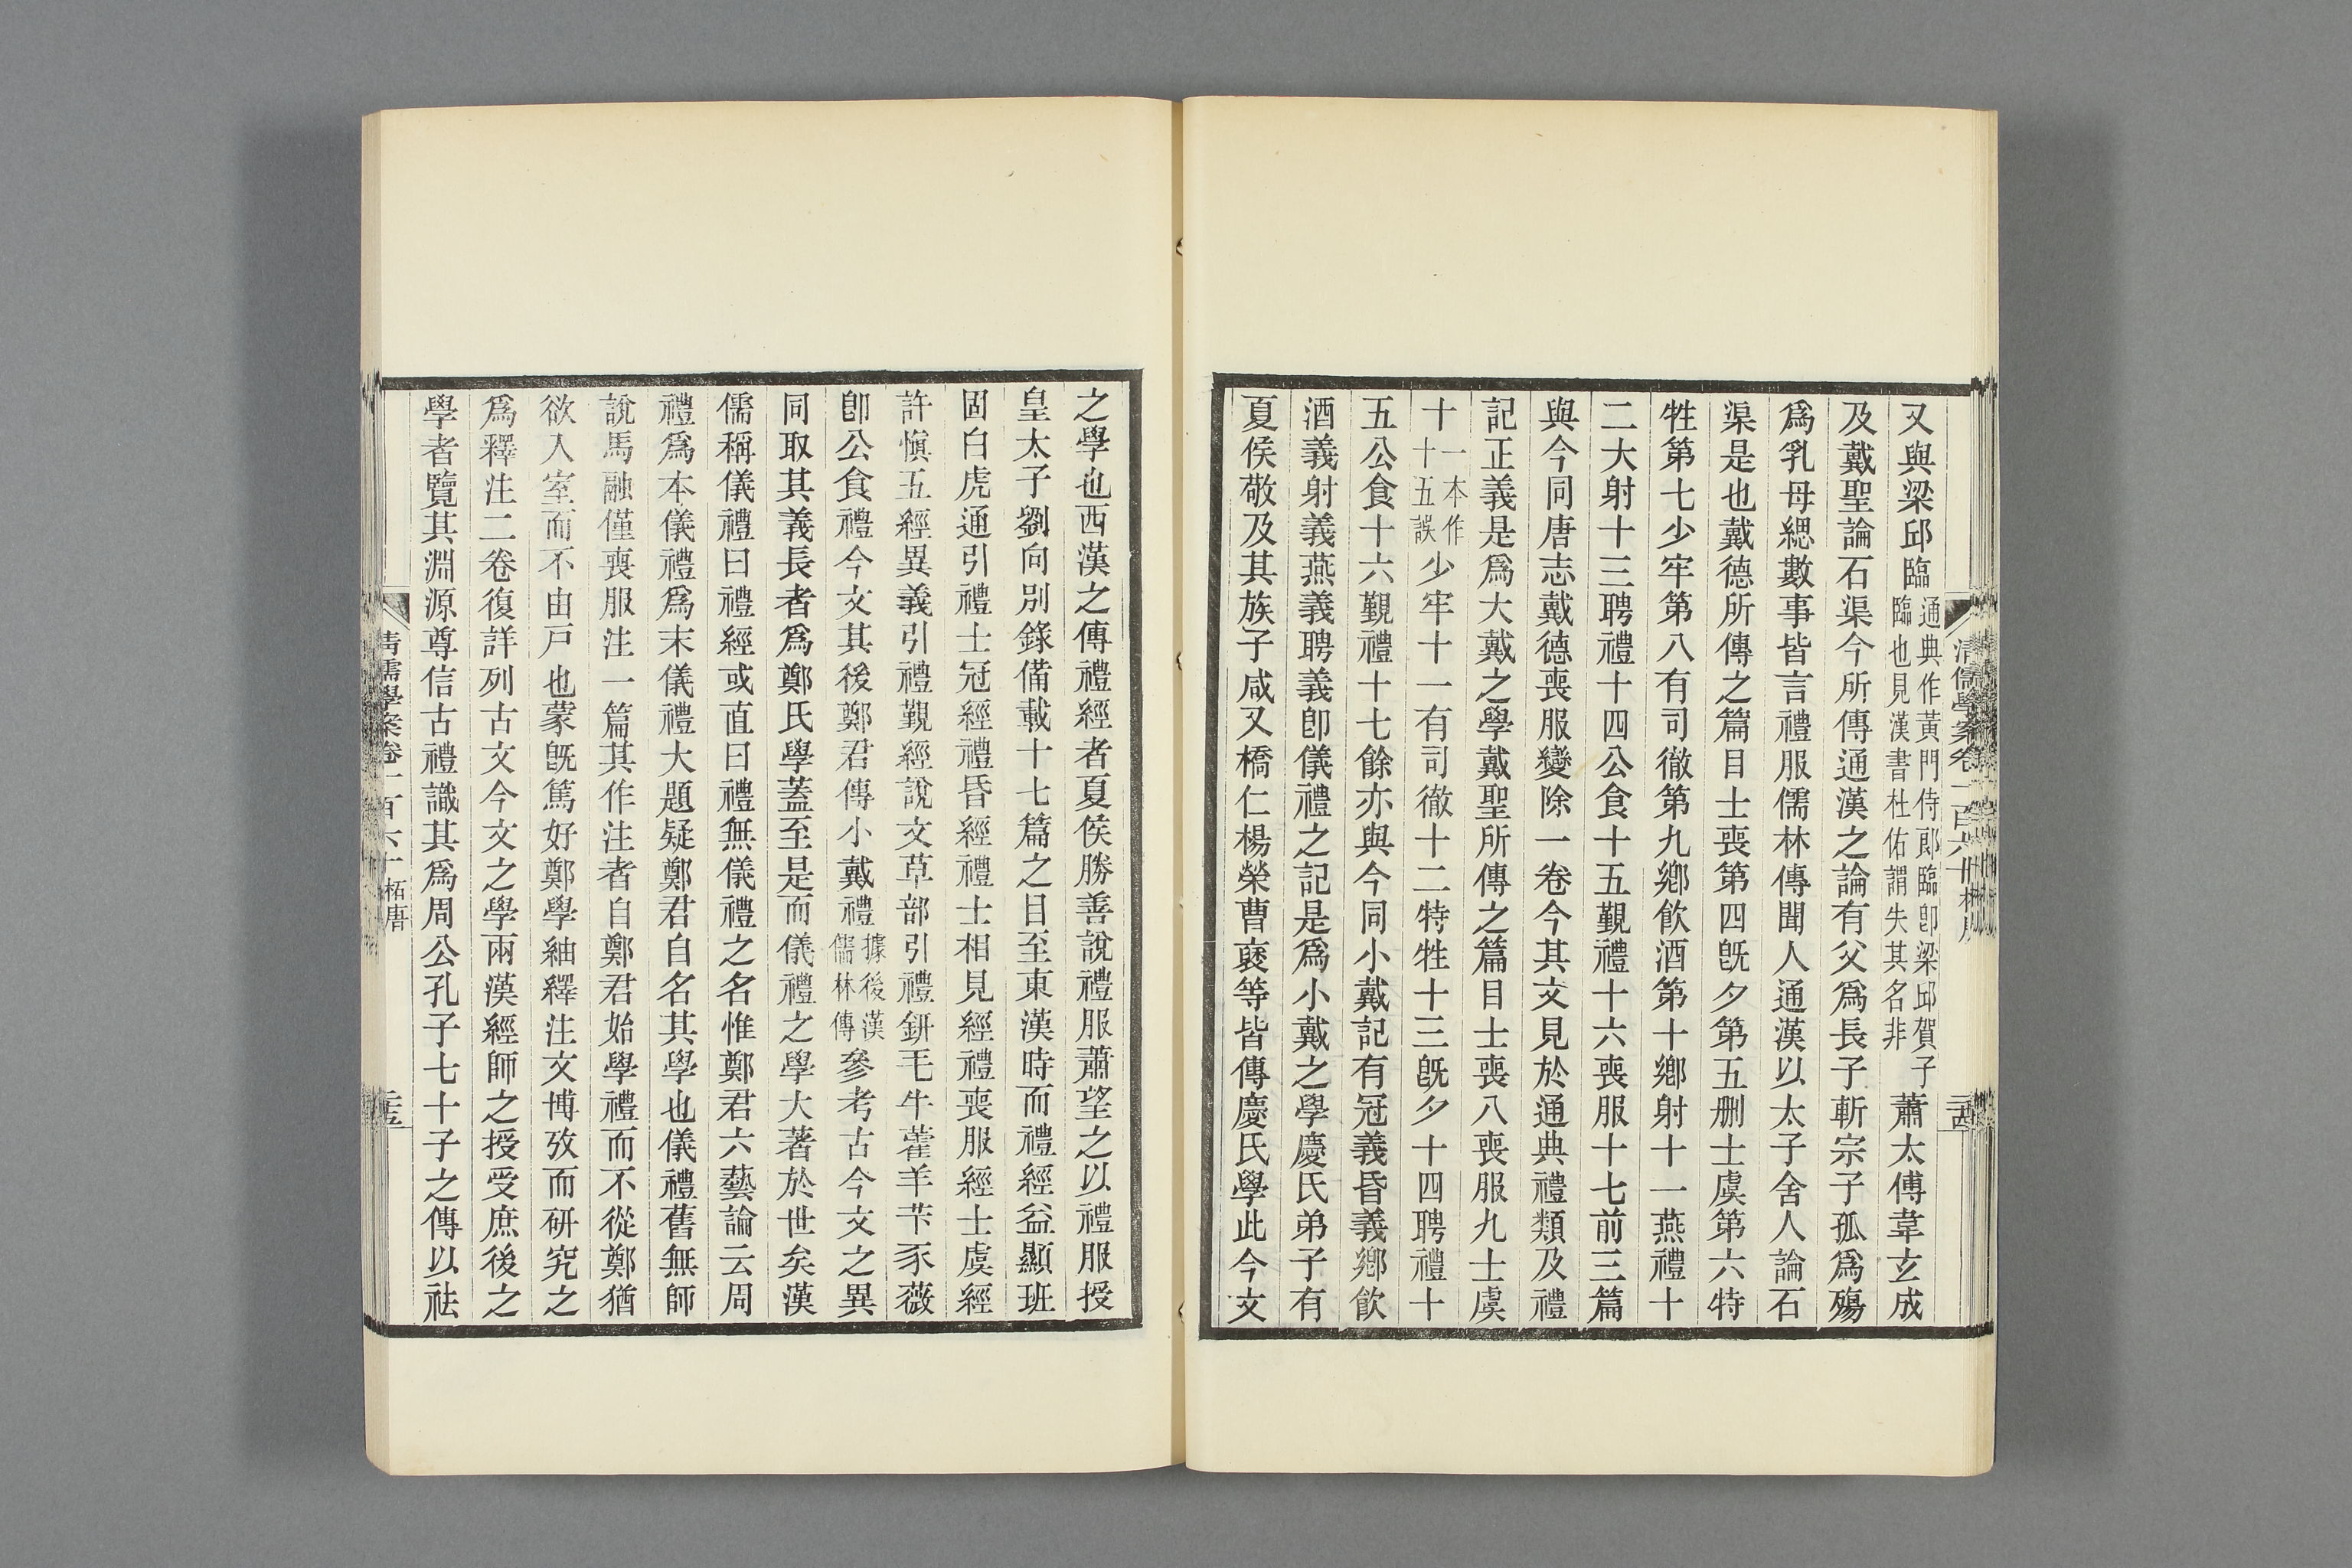 又與梁邱臨通典作黃門侍郎臨卽梁邱賀子臨也見漢書杜佑謂失其名非蕭太傅韋玄成
及戴聖論石渠今所傳通漢之論有父爲長子斬宗子孤爲殤
爲乳母緦數事皆言禮服儒林傳聞人通漢以太子舍人論石
渠是也戴德所傳之篇目士喪第四旣夕第五刪士虞第六特
牲第七少牢第八有司徹第九鄉飲酒第十鄉射十一燕禮十
二大射十三聘禮十四公食十五覲禮十六喪服十七前三篇
與今同唐志戴德喪服變除一卷今其文見於通典禮類及禮
記正義是爲大戴之學戴聖所傳之篇目士喪八喪服九士虞
十一本作十五誤少牢十一有司徹十二特牲十三旣夕十四聘禮十
五公食十六覲禮十七餘亦與今同小戴記有冠義昏義鄉飲
酒義射義燕義聘義卽儀禮之記是爲小戴之學慶氏弟子有
夏侯敬及其族子咸又橋仁楊榮曹褒等皆傳慶氏學此今文
清儒學案卷一百六十
二十四
之學也西漢之傳禮經者夏侯勝善說禮服蕭望之以禮服授
皇太子劉向別錄備載十七篇之目至東漢時而禮經益顯班
固白虎通引禮士冠經禮昏經禮士相見經禮喪服經士虞經
許愼五經異義引禮覲經說文草部引禮鈃毛牛藿羊芐豕薇
卽公食禮今文其後鄭君傳小戴禮據後漢儒林傳參考古今文之異
同取其義長者爲鄭氏學蓋至是而儀禮之學大著於世矣漢
儒稱儀禮曰禮經或直曰禮無儀禮之名惟鄭君六藝論云周
禮爲本儀禮爲末儀禮大題疑鄭君自名其學也儀禮舊無師
說馬融僅喪服注一篇其作注者自鄭君始學禮而不從鄭猶
欲入室而不由戶也蒙旣篤好鄭學紬繹注文博攷而研究之
爲釋注二卷復詳列古文今文之學兩漢經師之授受庶後之
學者覽其淵源尊信古禮識其爲周公孔子七十子之傳以祛
清儒學案卷一百六十 柘唐
二十五